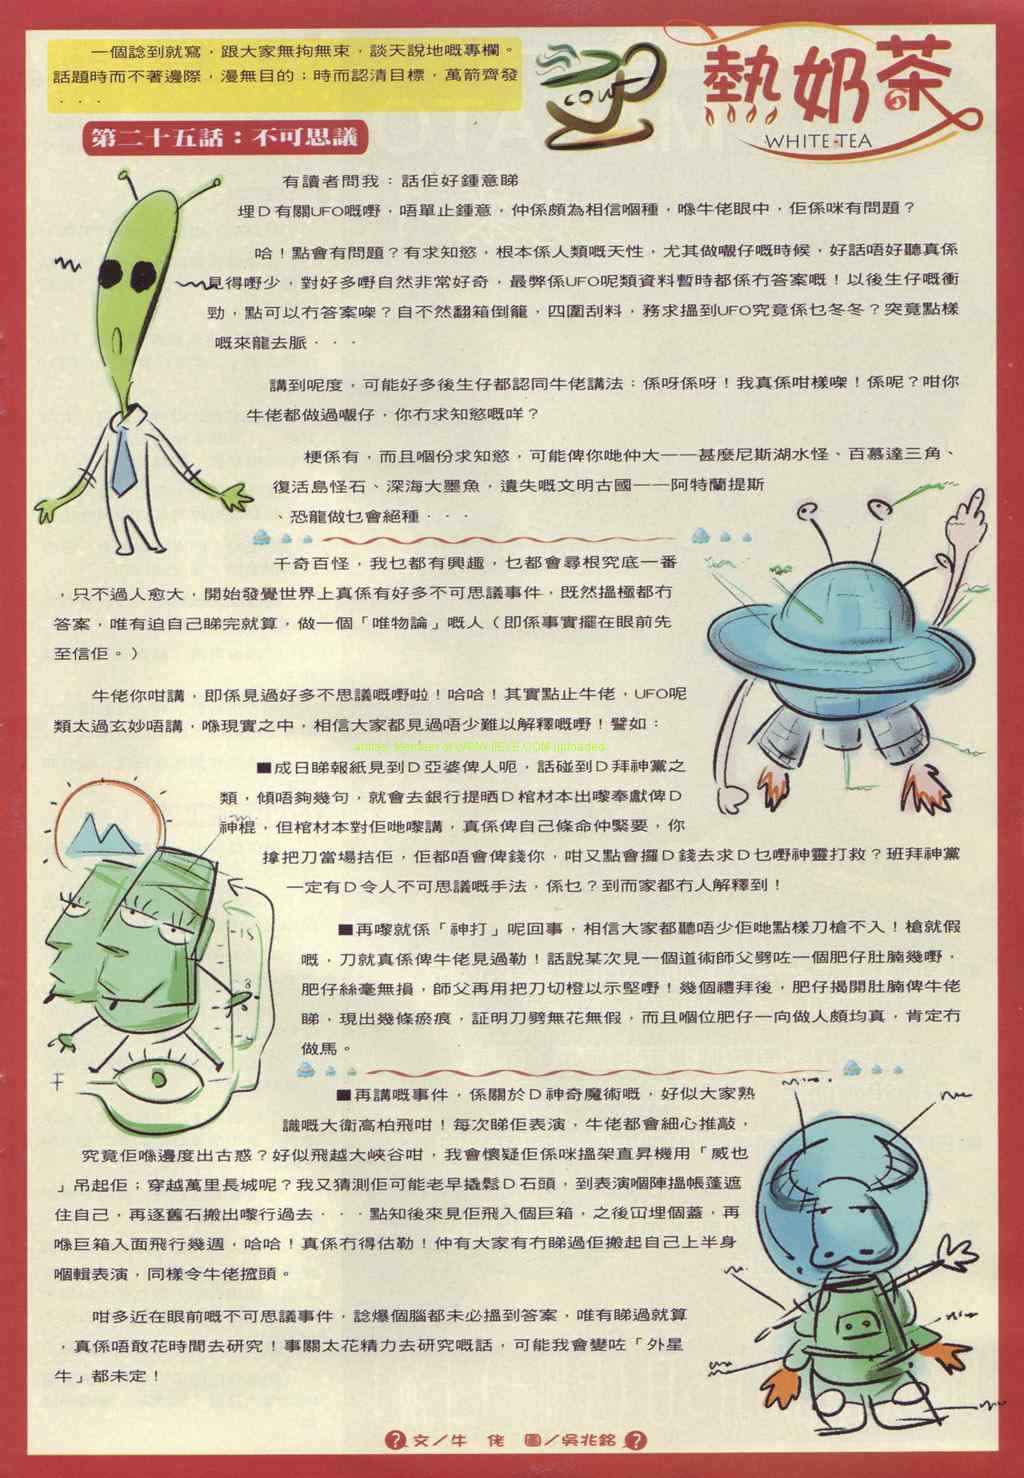 一個諗到就寫，跟大家無拘無束，談天說地嘅專欄。
話題時而不著邊際，漫無目的；時而認清目標，萬箭齊發
．．．
COW
熱奶茶
WHITE TEA
第二十五話：不可思議
有讀者問我：話佢好鍾意睇
埋Ｄ有關UFO嘅嘢，唔單止鍾意，仲係頗為相信嗰種，喺牛佬眼中，佢係咪有問題？
哈！點會有問題？有求知慾，根本係人類嘅天性，尤其做𡃁仔嘅時候，好話唔好聽真係
見得嘢少，對好多嘢自然非常好奇，最弊係UFO呢類資料暫時都係冇答案嘅！以後生仔嘅衝
勁，點可以冇答案㗎？自不然翻箱倒籠，四圍刮料，務求搵到UFO究竟係乜冬冬？究竟點樣
嘅來龍去脈．．．
講到呢度，可能好多後生仔都認同牛佬講法：係呀係呀！我真係咁樣㗎！係呢？咁你
牛佬都做過𡃁仔，你冇求知慾嘅咩？
梗係有，而且嗰份求知慾，可能俾你哋仲大——甚麼尼斯湖水怪、百慕達三角、
復活島怪石、深海大墨魚，遺失嘅文明古國——阿特蘭提斯
、恐龍做乜會絕種．．．
千奇百怪，我乜都有興趣，乜都會尋根究底一番
，只不過人愈大，開始發覺世界上真係有好多不可思議事件，既然搵極都冇
答案，唯有迫自己睇完就算，做一個「唯物論」嘅人（即係事實擺在眼前先
至信佢。）
牛佬你咁講，即係見過好多不思議嘅嘢啦！哈哈！其實點止牛佬，UFO呢
類太過玄妙唔講，喺現實之中，相信大家都見過唔少難以解釋嘅嘢！譬如：
■成日睇報紙見到Ｄ亞婆俾人呃，話碰到Ｄ拜神黨之
類，傾唔夠幾句，就會去銀行提晒Ｄ棺材本出嚟奉獻俾Ｄ
神棍，但棺材本對佢哋嚟講，真係俾自己條命仲緊要，你
攞把刀當場拮佢，佢都唔會俾錢你，咁又點會攞Ｄ錢去求Ｄ乜嘢神靈打救？班拜神黨
一定有Ｄ令人不可思議嘅手法，係乜？到而家都冇人解釋到！
■再嚟就係「神打」呢回事，相信大家都聽唔少佢哋點樣刀槍不入！槍就假
嘅，刀就真係俾牛佬見過勒！話說某次見一個道術師父劈咗一個肥仔肚腩幾嘢，
肥仔絲毫無損，師父再用把刀切橙以示堅嘢！幾個禮拜後，肥仔揭開肚腩俾牛佬
睇，現出幾條瘀痕，証明刀劈無花無假，而且嗰位肥仔一向做人頗均真，肯定冇
做馬。
■再講嘅事件，係關於Ｄ神奇魔術嘅，好似大家熟
識嘅大衛高柏飛咁！每次睇佢表演，牛佬都會細心推敲，
究竟佢喺邊度出古惑？好似飛越大峽谷咁，我會懷疑佢係咪搵架直昇機用「威也
」吊起佢；穿越萬里長城呢？我又猜測佢可能老早撬鬆Ｄ石頭，到表演嗰陣搵帳蓬遮
住自己，再逐舊石搬出嚟行過去．．．點知後來見佢飛入個巨箱，之後冚埋個蓋，再
喺巨箱入面飛行幾週，哈哈！真係冇得估勒！仲有大家有冇睇過佢搬起自己上半身
嗰輯表演，同樣令牛佬擰頭。
咁多近在眼前嘅不可思議事件，諗爆個腦都未必搵到答案，唯有睇過就算
，真係唔敢花時間去研究！事關太花精力去研究嘅話，可能我會變咗「外星
牛」都未定！
文／牛　佬　圖／吳兆銘